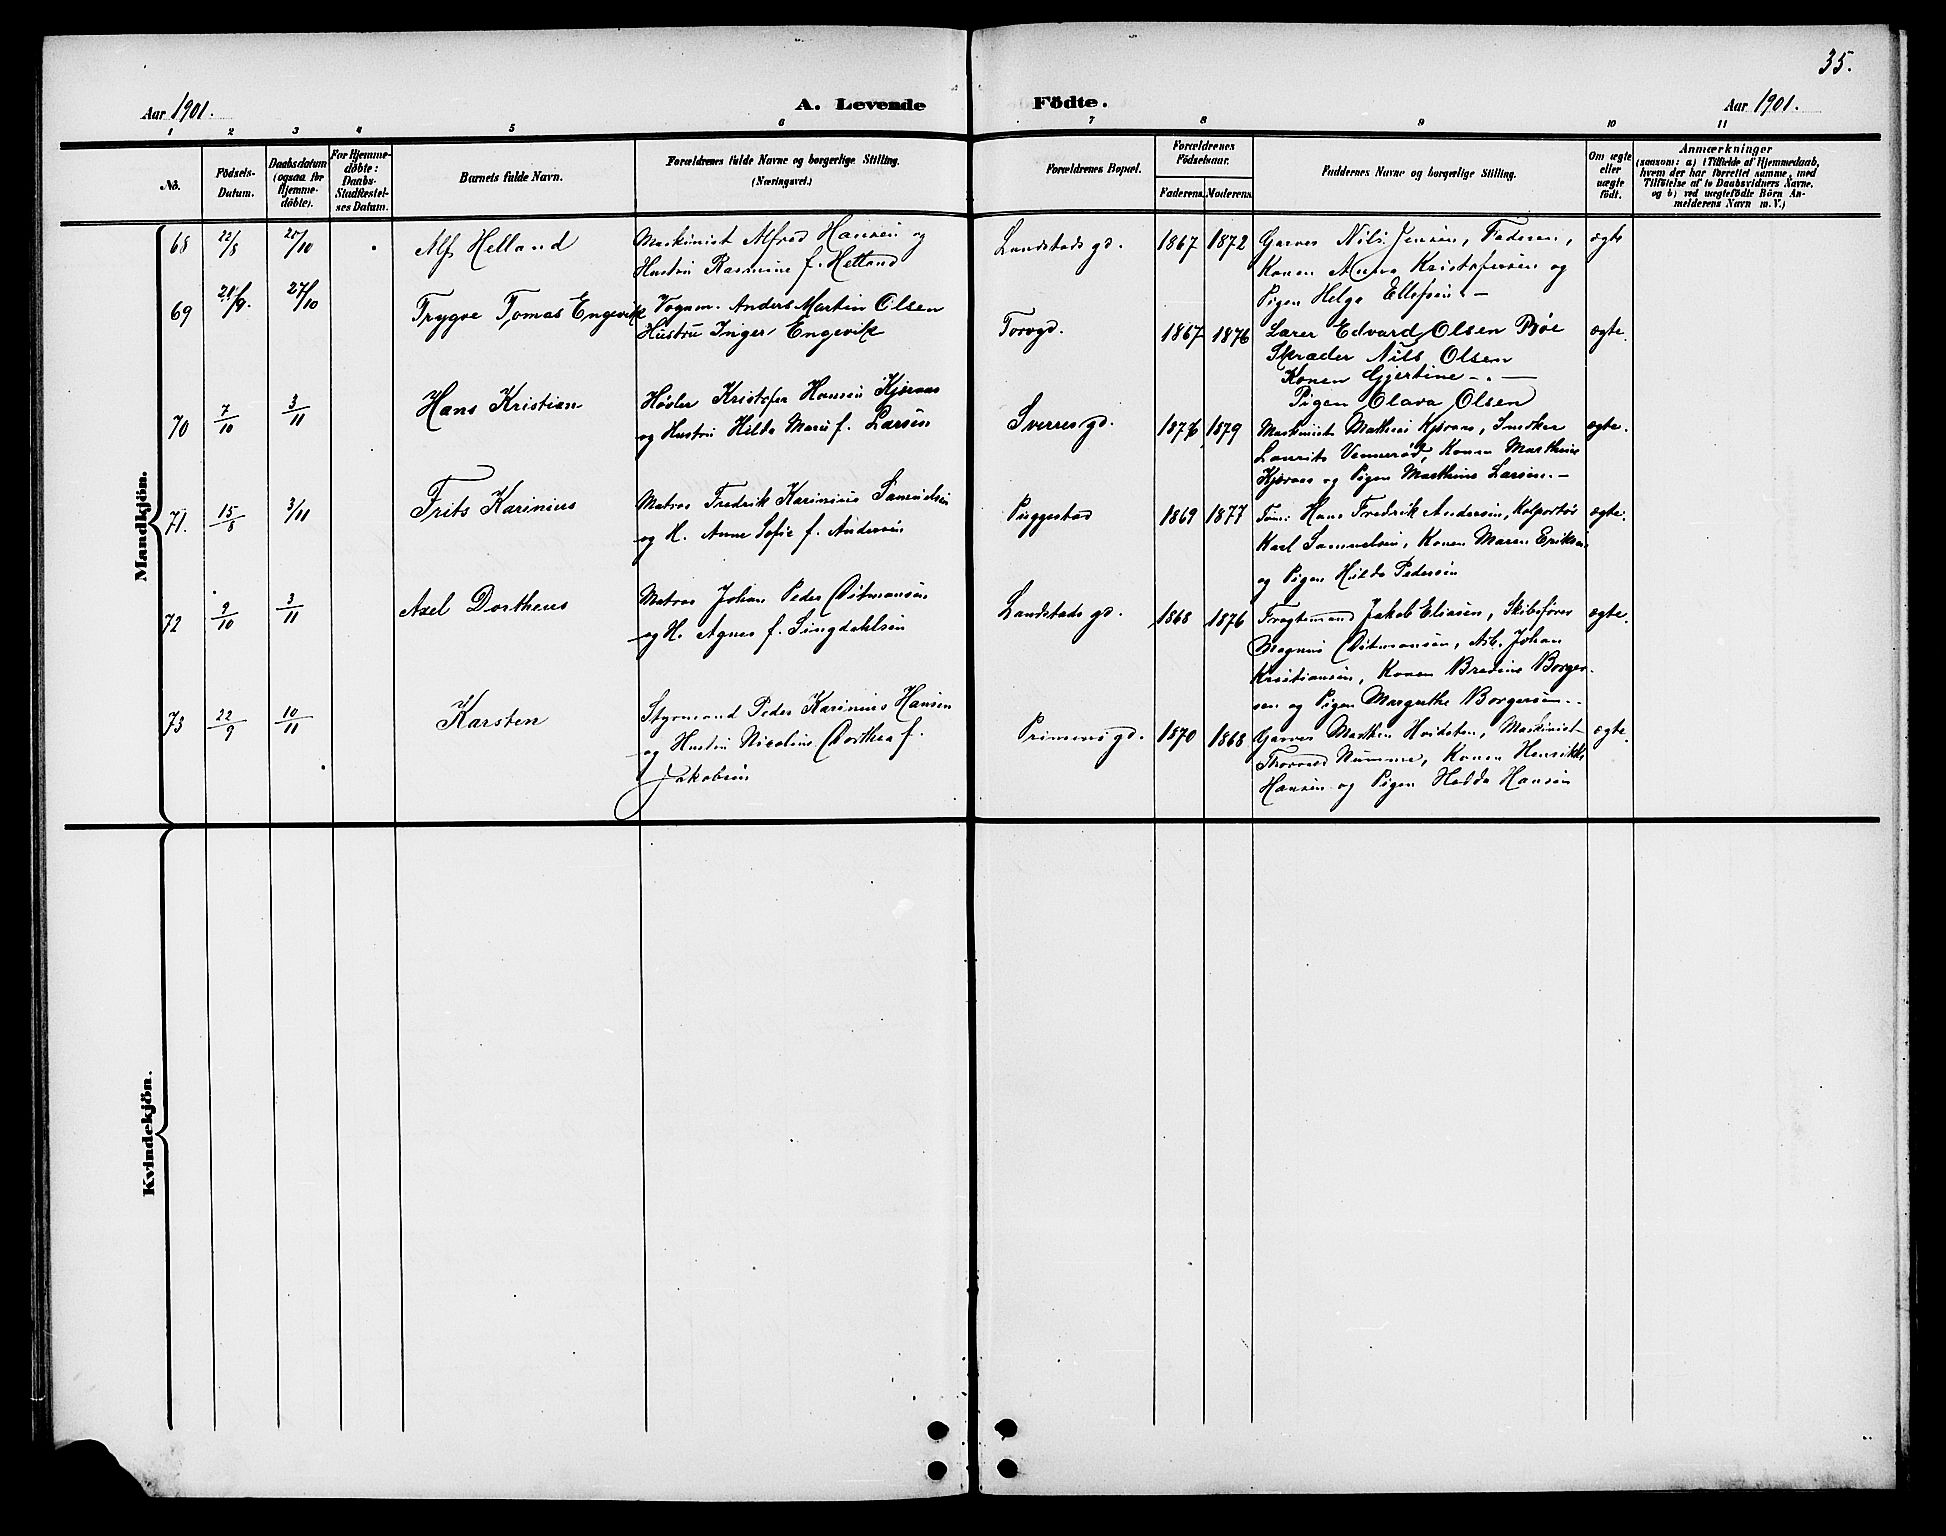 35.
Aar 1901.
A. Levende Födte.
Aar 1901.
1 2 3 4 5 6 7 8 9 10 11
No.
Födsels-Datum.
Daabsdatum (ogsaa for Hjemme-döbte).
For Hjemme-döbte: Daabs-Stadfæstel-ses Datum.
Barnets fulde Navn.
Forældrenes fulde Navne og borgerlige Stilling. (Næringsvei.)
Forældrenes Bopæl.
Forældrenes Födselsaar.
Faderens. Moderens.
Faddernes Navne og borgerlige Stilling.
Om ægte eller uægte födt.
Anmærkninger
(saasom: a) i Tilfælde af Hjemmedaab,
hvem der har forrettet samme, med
Tilföielse af to Daabsvidners Navne,
og b) ved uægtefödte Börn An-
melderens Navn m. V.)
Mandkjön.
68 22/8 20/10 Alf Helland
Maskinist Alfred Hansen og
Hustru Rasmine f. Helland
Landstads gd. 1867 1872
Garver Nils Jensen, Faderen,
Konen Anna Kristofersen og
Pigen Helga Ellefsen. —
ægte
69 27/10 Trygve Tomas Engevik
Vognm. Anders Martin Olsen
Hustru Inger Engevik
Torvgd. 1867 1876
Lærer Edvard Olsen Bøe
Skræder Nils Olsen
Konen Gjertine — . —
Pigen Olava Olsen
ægte.
70 7/10 3/11 Hans Kristian
Høvler Kristofer Hansen Kjøraas
og Hustru Hilda Marie f. Larsen
Sverres gd. 1876 1879
Maskinist Mathias Kjøraas, Snedker
Laurits Vennerød, Konen Marthine
Kjøraas og Pigen Marthine Larsen. —
ægte.
71. 15/8 3/11 Frits Karinius
Matros Fredrik Karinius Samuelsen
og H. Anne Sofie f. Andersen
Piggestad 1869 1877
Tøm: Hans Fredrik Andersen, Kolportør
Karl Samuelsen, Konen Maren Eriksen
og Pigen Hilda Pedersen
ægte.
72 9/10 3/11 Axel Dortheus
Matros Johan Peder Ditmansen
og H. Agnes f. Singdahlsen
Landstads gd. 1868 1876
Fragtemand Jakob Eliasen, Skibsfører
Magnus Ditmansen, Arb. Johan
Kristiansen, Konen Bredine Borger-
sen og Pigen Margrethe Borgersen..
ægte.
73 22/9 10/11 Karsten
Styrmand Peder Karinius Hansen
og Hustru Nicoline Dorthea f.
Jakobsen
Primmens gd. 1870 1868
Garver Marten Hvidsten, Maskinist
Thorvald Numme, Konen Henrikke
Hansen og Pigen Hedda Hansen
ægte.
Kvindekjön.